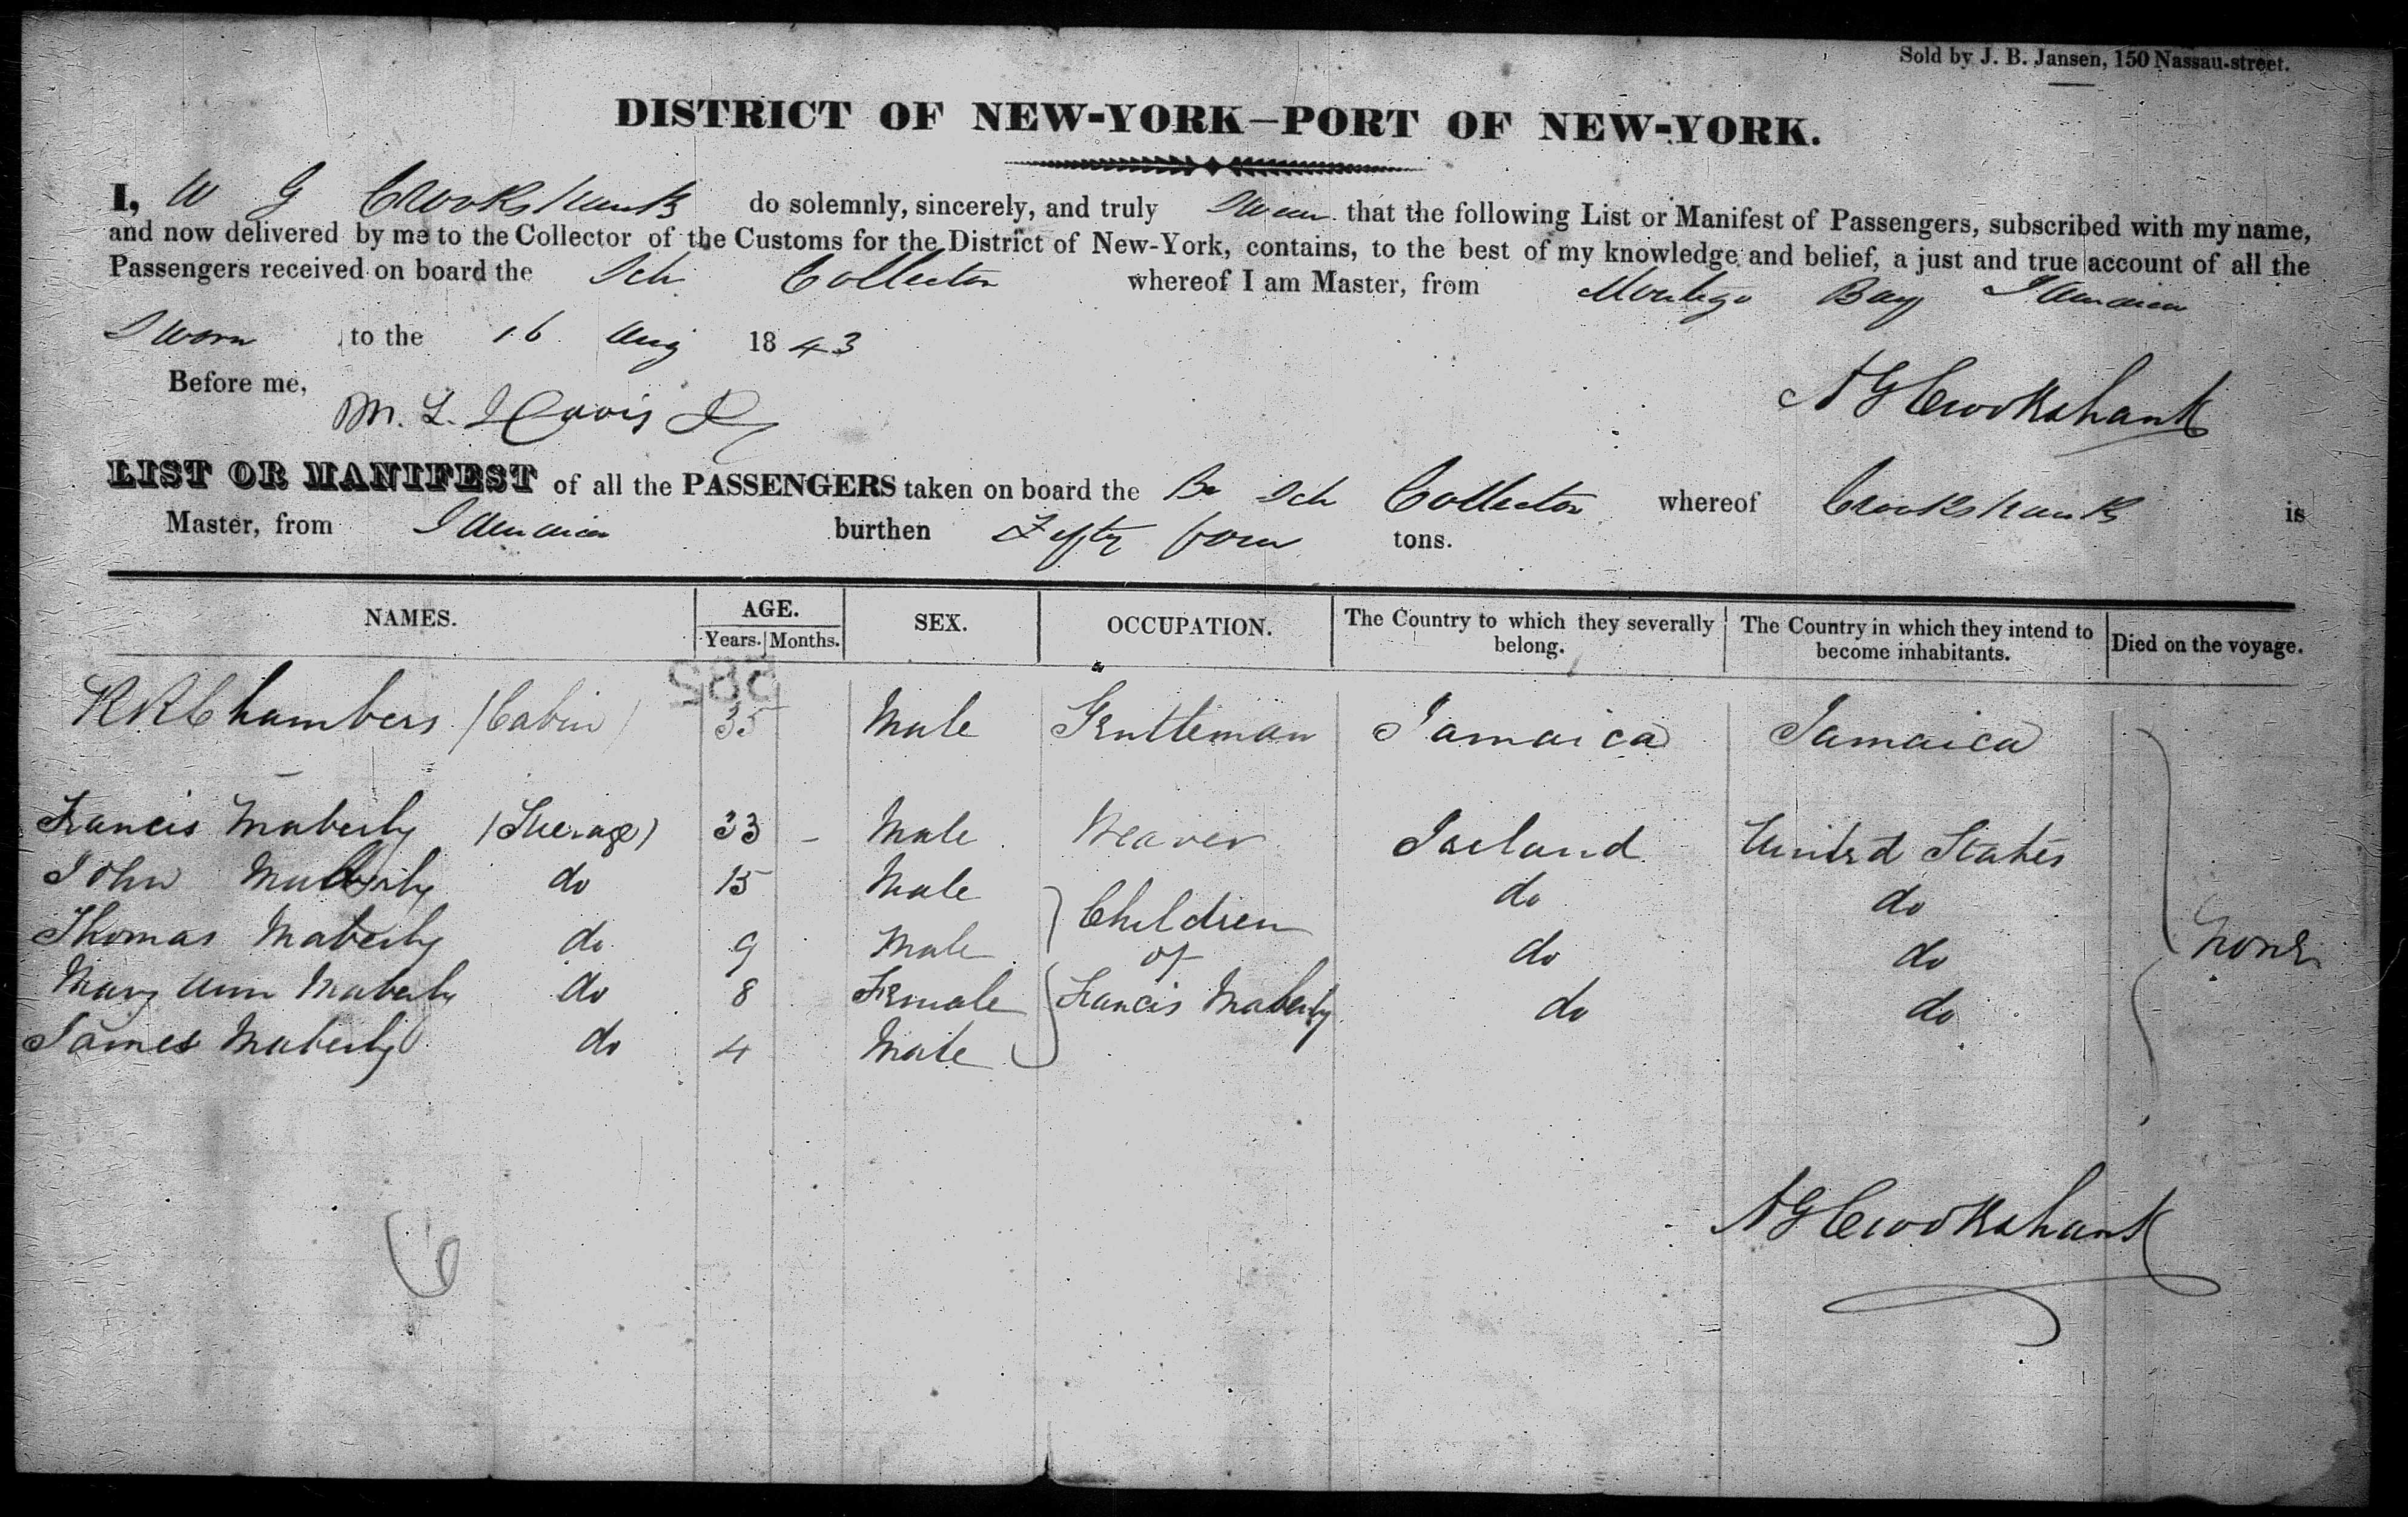 Sold by J. B. Jansen, 150 Nassau-street.
DISTRICT OF NEW-YORK—PORT OF NEW-YORK.
I, W G Crookshank do solemnly, sincerely, and truly Swear that the following List or Manifest of Passengers, subscribed with my name,
and now delivered by me to the Collector of the Customs for the District of New-York, contains, to the best of my knowledge and belief, a just and true account of all the
Passengers received on board the Sch Collector whereof I am Master, from Montego Bay Jamaica
Sworn to the 16 Aug 1843
Before me, M. L. Davis Jr
Crookshank
LIST OR MANIFEST of all the PASSENGERS taken on board the Br Sch Collector whereof Crookshank is
Master, from Jamaica burthen Fifty four tons.
NAMES. AGE. SEX. OCCUPATION. The Country to which they severally belong. The Country in which they intend to become inhabitants. Died on the voyage.
Years. Months.
585
R R Chambers (Cabin) 35 Male Gentleman Jamaica Jamaica
Francis Maberly (Steerage) 33 - Male Weaver Ireland United States
John Maberly do 15 Male do do
Thomas Maberly do 9 Male Children of do do None
Mary Ann Maberly do 8 Female Francis Maberly do do
James Maberly do 4 Male
Crookshank
6